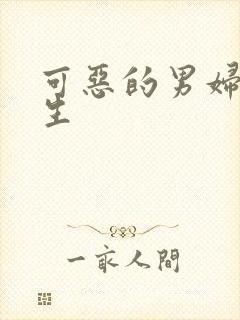 可惡的男婦
生
一家人間